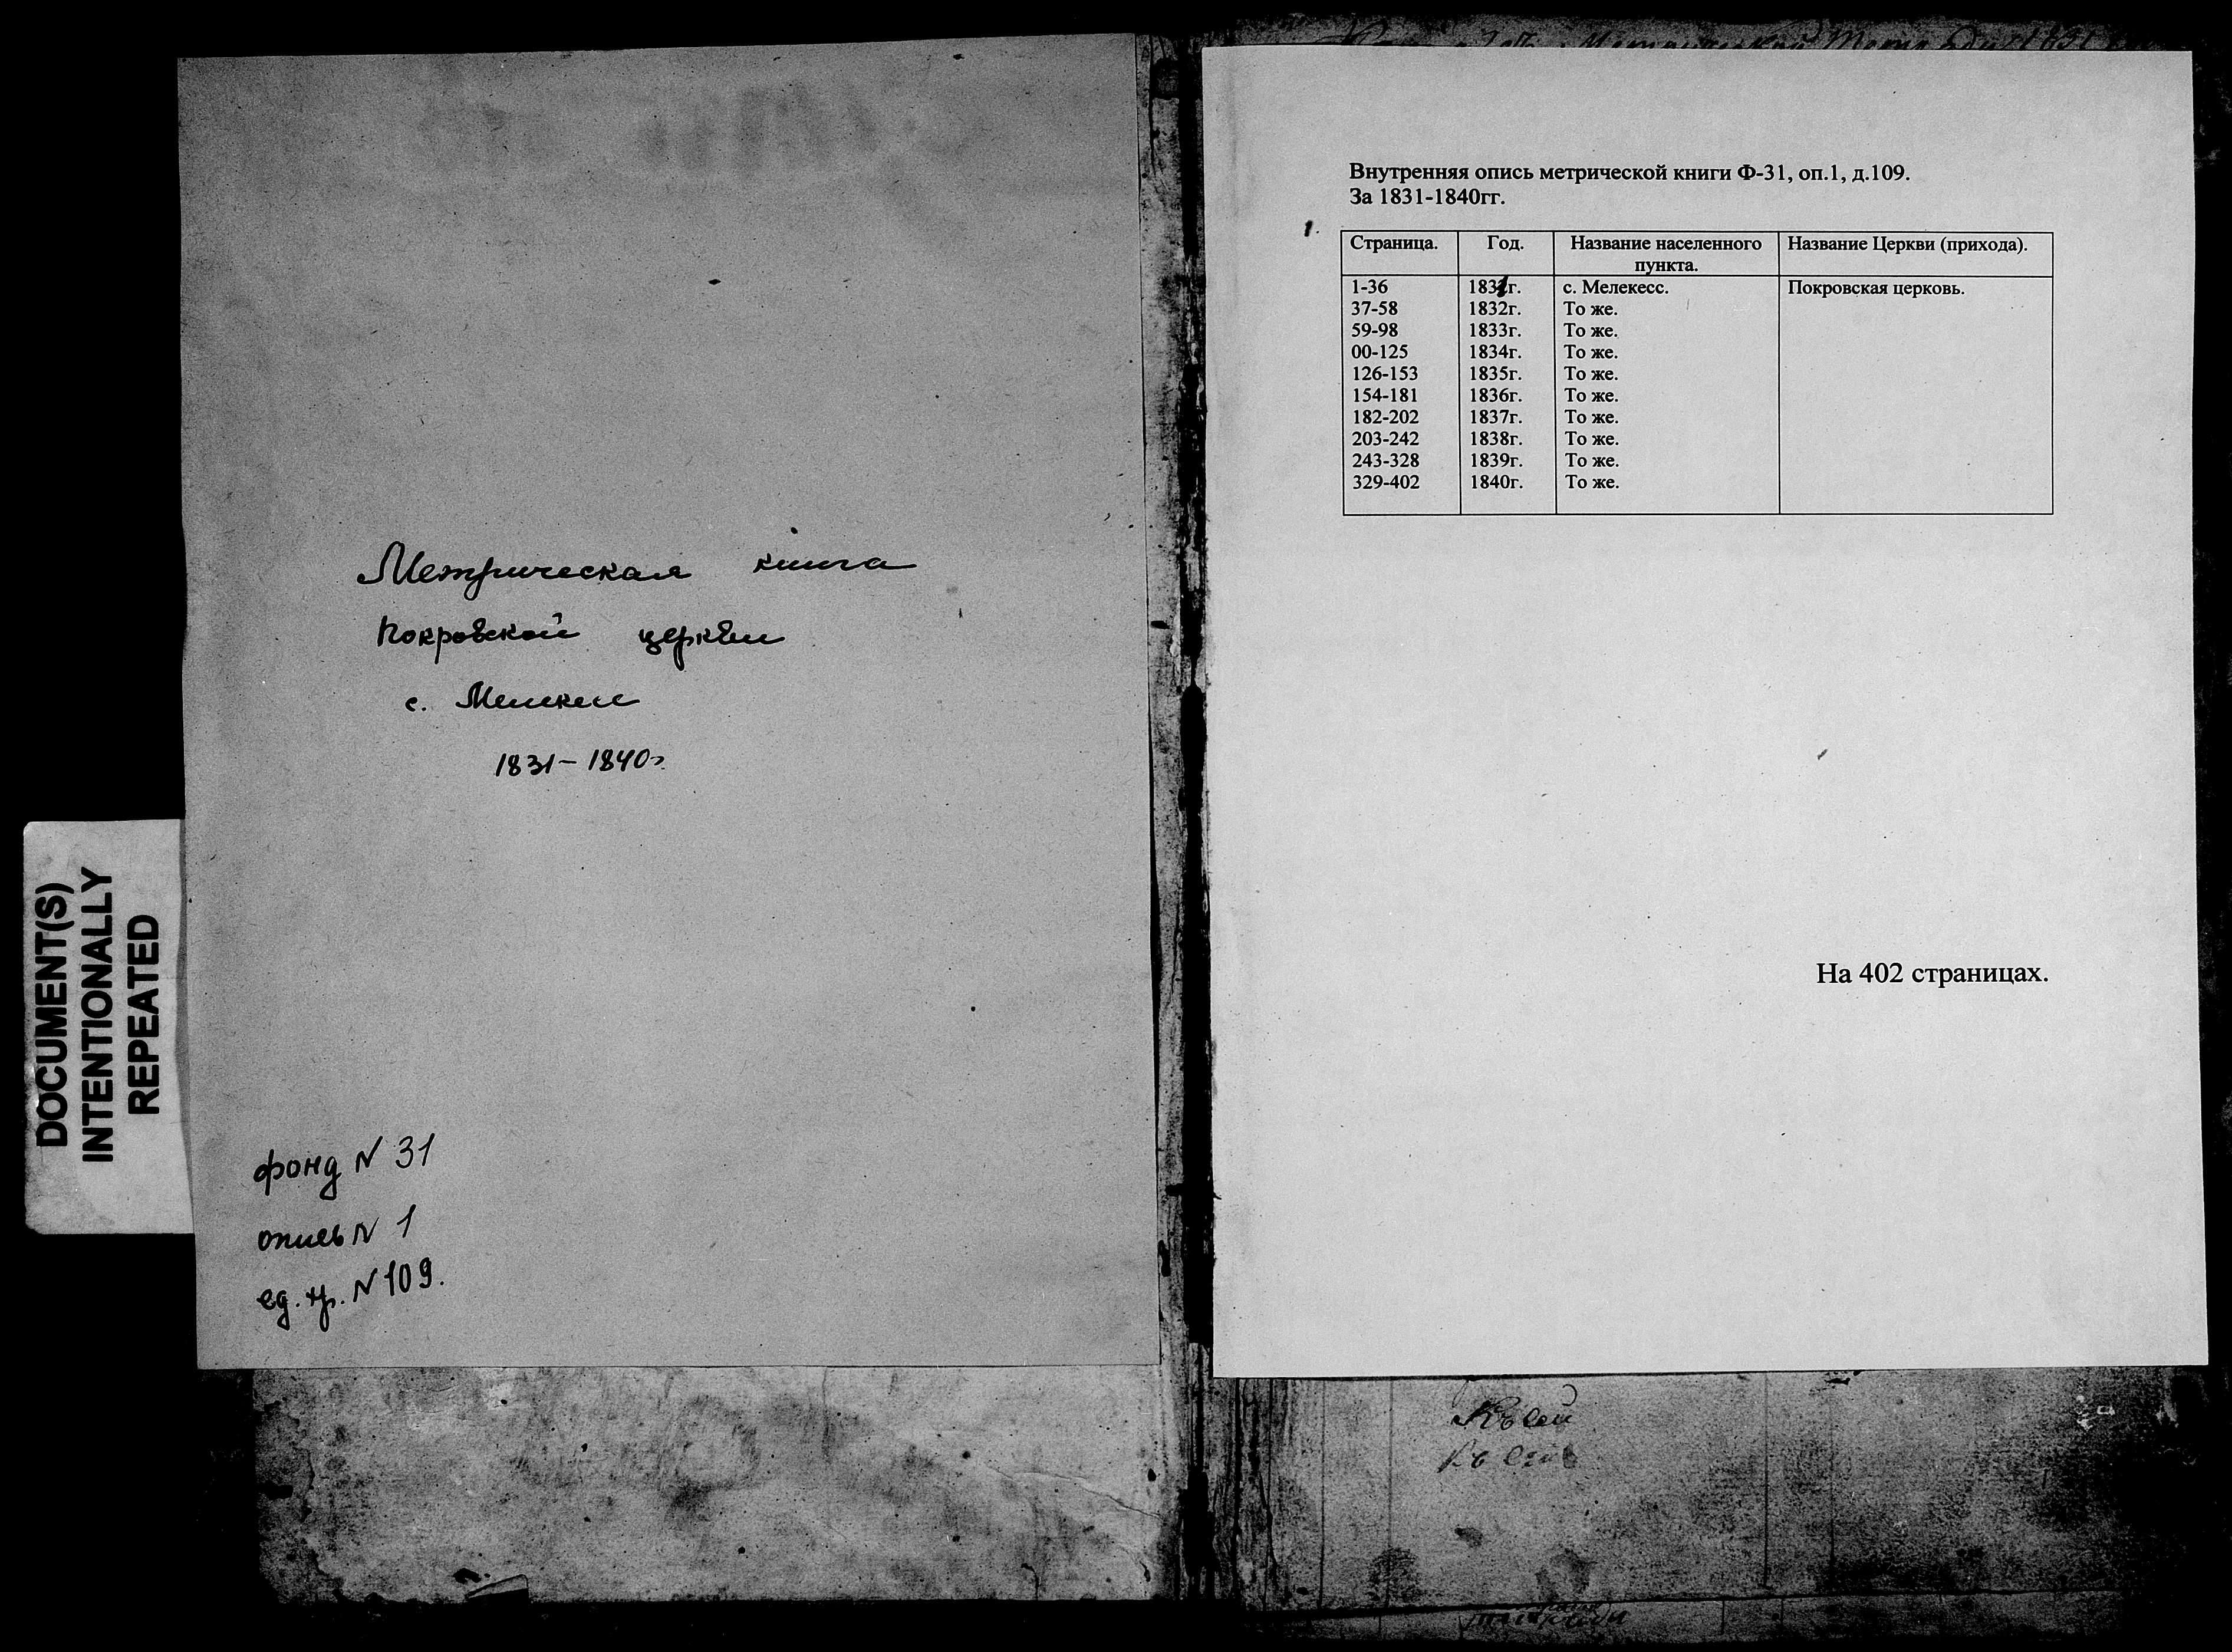 DOCUMENT(S)
INTENTIONALLY
REPEATED
Метрическая книга
Покровской церкви
с. Мелекесс
1831-1840г.
фонд N 31
опись N 1
ед. хр. N 109.
Внутренняя опись метрической книги Ф-31, оп.1, д.109.
За 1831-1840гг.
1.
Страница. Год. Название населенного пункта. Название Церкви (прихода).
1-36 1831г. с. Мелекесс. Покровская церковь.
37-58 1832г. То же.
59-98 1833г. То же.
00-125 1834г. То же.
126-153 1835г. То же.
154-181 1836г. То же.
182-202 1837г. То же.
203-242 1838г. То же.
243-328 1839г. То же.
329-402 1840г. То же.
На 402 страницах.